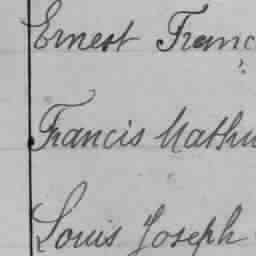 Ernest Franc
Francis Mathu
Louis Joseph